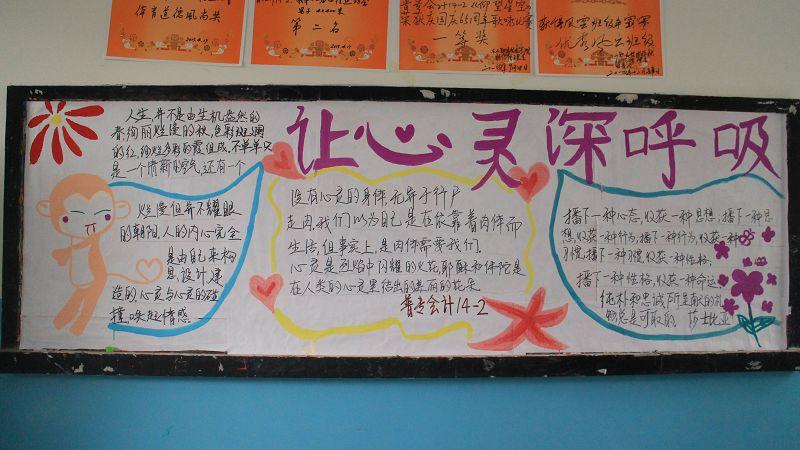 体育道德风尚奖
第二名
一等奖
优秀班级
让心灵深呼吸
人生,并不是由生机盎然的
春,绚丽烂漫的秋,色彩斑斓
的红,绚烂多彩的霞组成,不单单只
是一个清新的空气,还有一个
烂漫但并不耀眼
的朝阳,人的内心完全
是由自己来构
思、设计、建
造的,心灵与心灵的碰
撞,味起情感
没有心灵的身体,无异于行尸
走肉,我们以为自己是在依靠着肉体而
生活,但事实上,是肉体需要我们。
心灵是烈焰中闪耀的火花,耶稣和佛陀是
在人类的心灵里结出的美丽的花朵
普专会计14-2
播下一种心态,收获一种思想,播下一种思
想,收获一种行为,播下一种行为,收获一种
习惯,播下一种习惯,收获一种性格,
播下一种性格,收获一种命运
纯朴和忠诚所呈献的礼
物总是可取的 莎士比亚